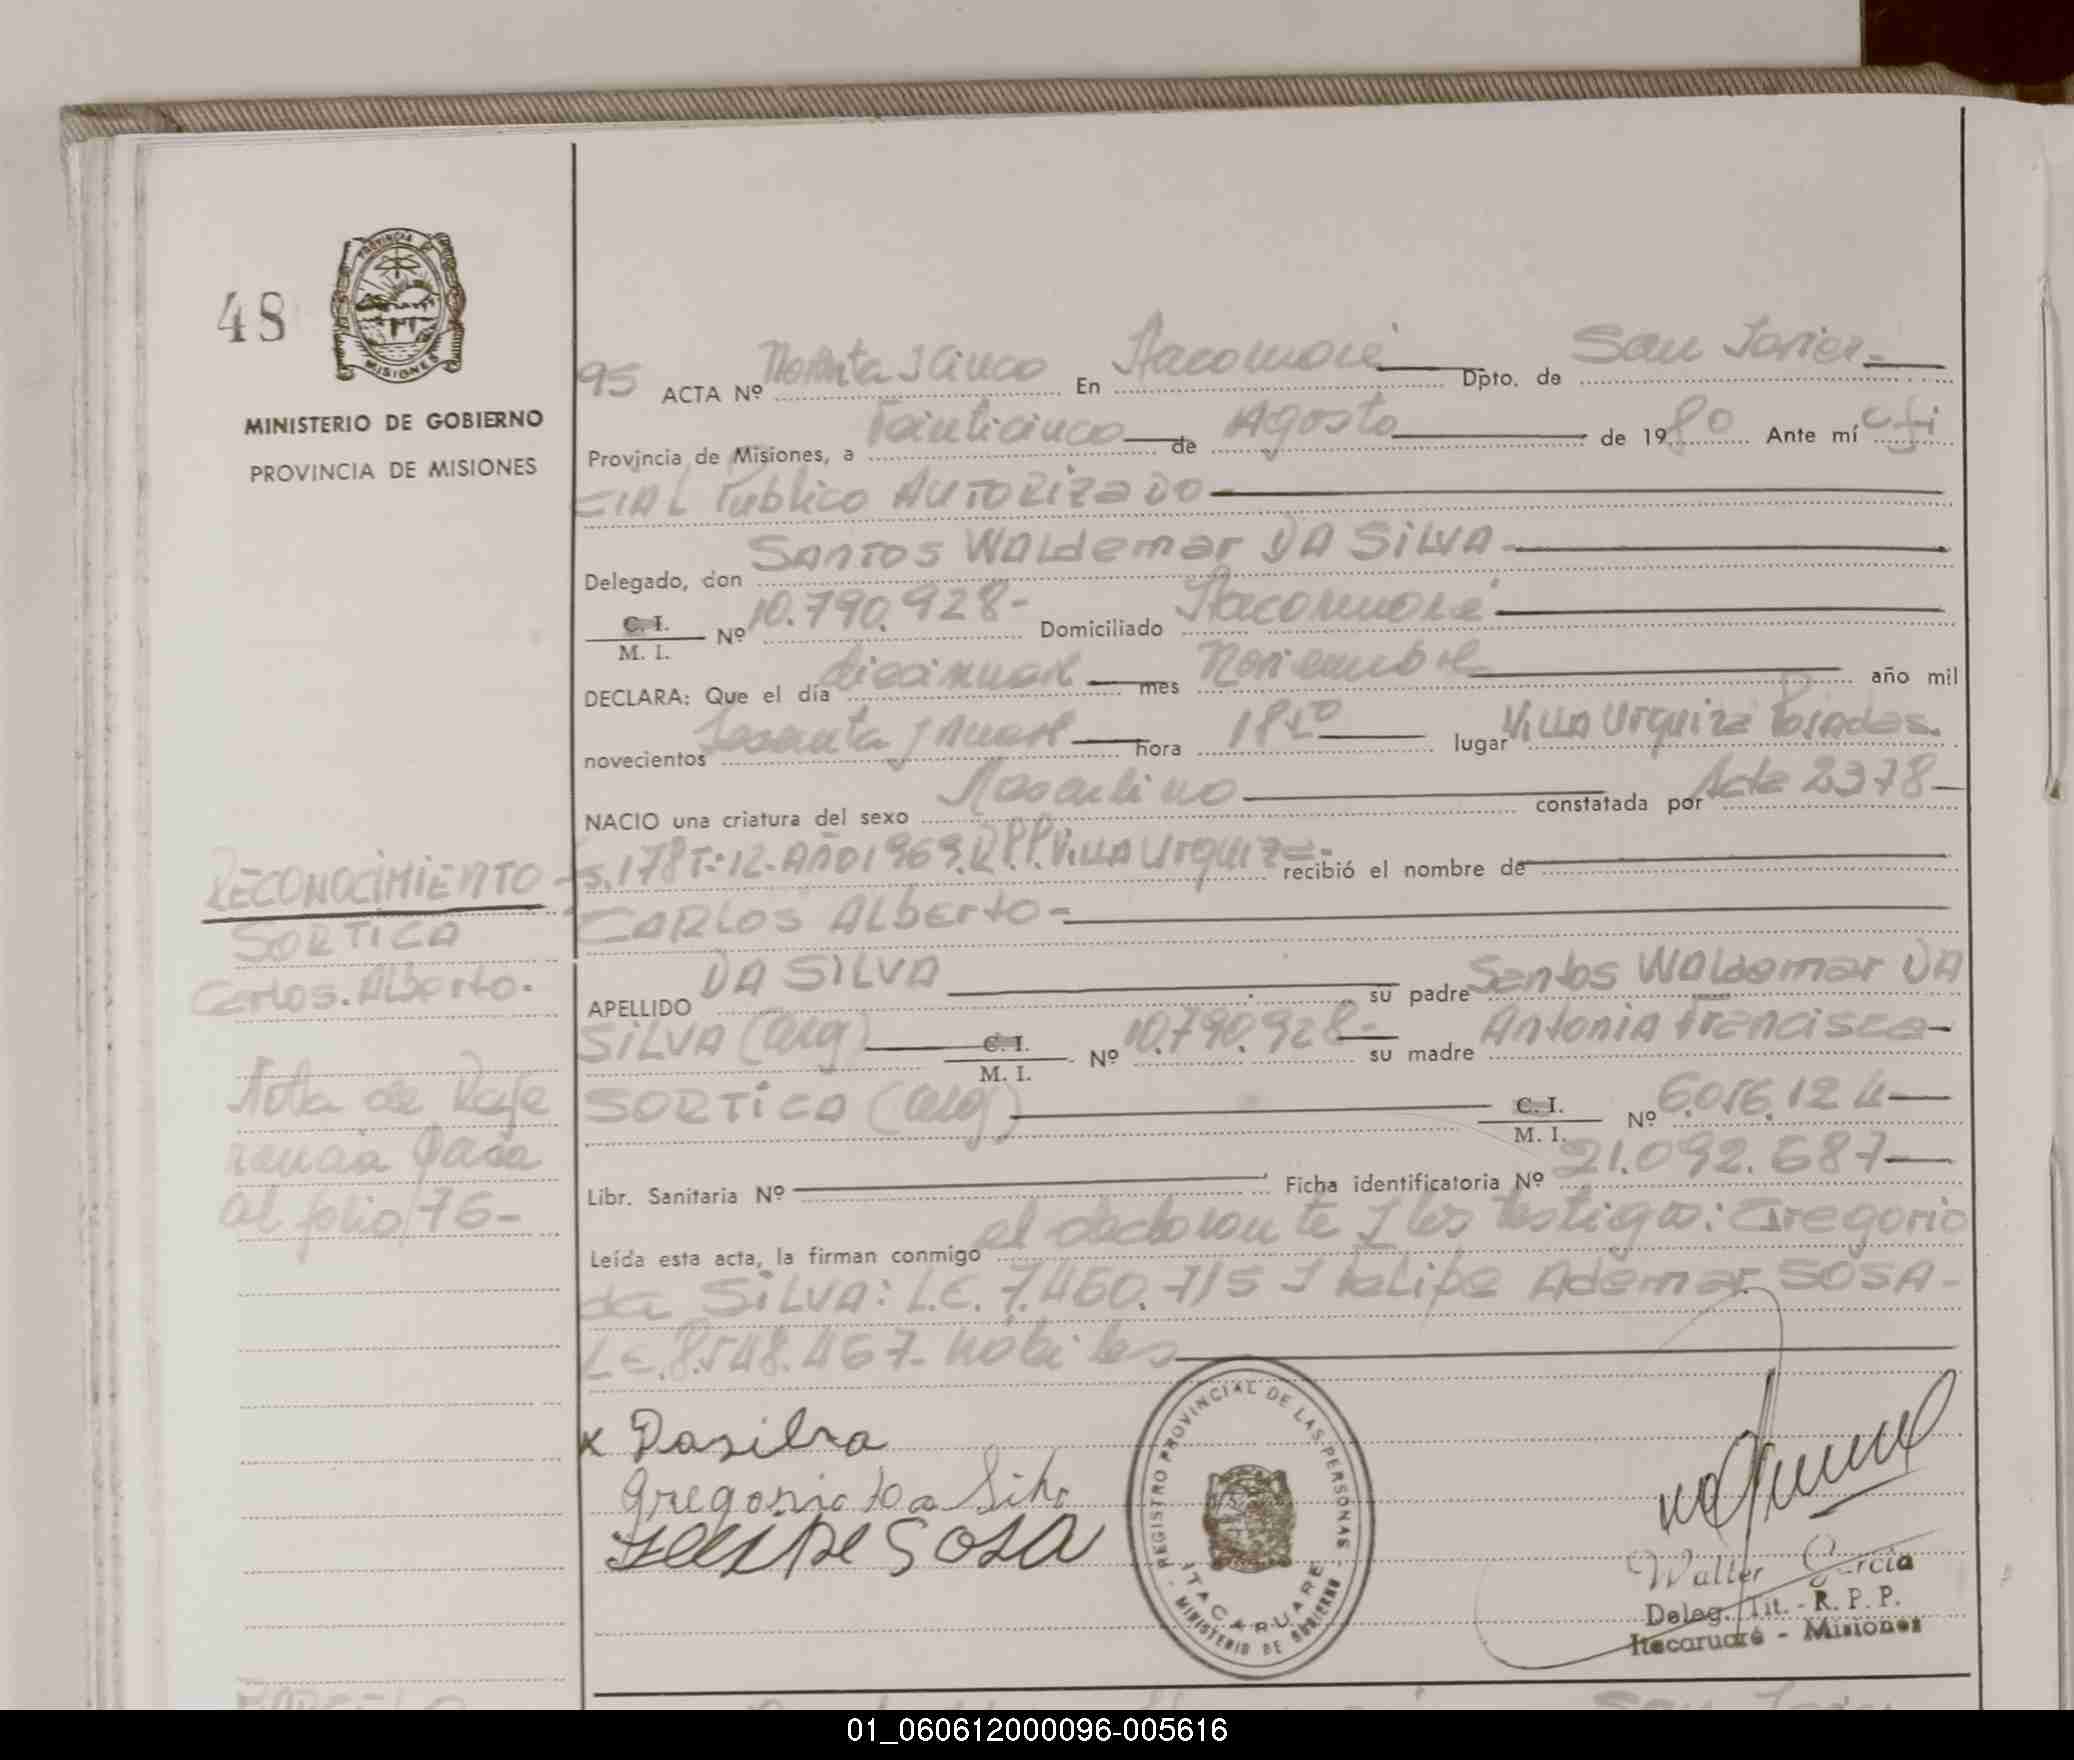 48
PROVINCIA
MISIONES
MINISTERIO DE GOBIERNO
PROVINCIA DE MISIONES
95 ACTA Nº Noventa y cinco En Itacaruaré Dpto. de San Javier-
Provincia de Misiones, a Veinticinco de Agosto de 1980 Ante mí ofi
CIAL Publico AUTORIZADO-
Delegado, don SANTOS WALdemar DA SILVA-
C. I.
M. I. Nº 10.790.928- Domiciliado Itacaruaré
DECLARA: Que el día diecinueve mes Noviembre año mil
novecientos Sesenta y nueve hora 18 lugar VILLA Urquiza Posadas.
NACIO una criatura del sexo Masculino constatada por Acta 2378-
178 T: 12- AÑO 1969. R.P.P. VILLA Urquiza- recibió el nombre de
CARLOS ALberto-
APELLIDO DA SILVA su padre Santos WALdemar DA
SILVA (arg) C. I.
M. I. Nº 10.790.928- su madre Antonia Francisca-
SORTICA (arg) C. I.
M. I. Nº 6.056.124
Libr. Sanitaria Nº Ficha identificatoria Nº 21.092.687-
Leída esta acta, la firman conmigo el declarante y los testigos: Gregorio
da SILVA: L.E. 7.460.715 y Felipe Ademar SOSA-
L.E. 8.548.467- hábiles
RECONOCIMIENTO-
SORTICA
Carlos. Alberto.
Nota de Refe
rencia Pasa
al folio 76-
x Dasilva
Gregorio da Silva
Felipe Sosa
REGISTRO PROVINCIAL DE LAS PERSONAS
ITACARUARE
MINISTERIO DE GOBIERNO
Walter Garcia
Deleg. Tit. - R. P. P.
Itacaruaré - Misiones
01_060612000096-005616